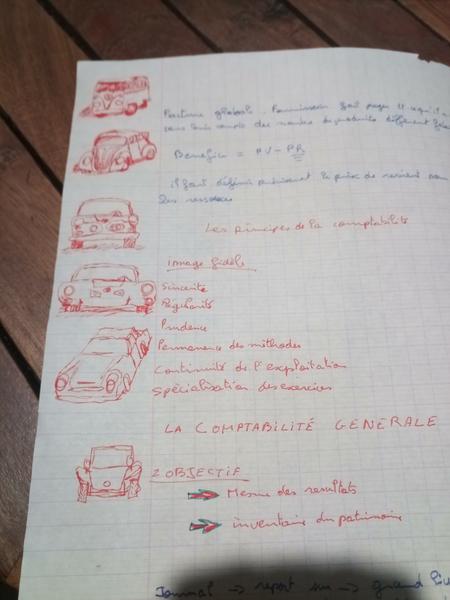 Facture globale. Fournisseur fait payer
sans tenir compte des
Benefice = PV - PR
il faut définir précisement le prix de revient
les ressources
Les principes de la comptabilité
image fidèle
Sincerité
Régularité
Prudence
Permanence des méthodes
Continuité de l'exploitation
Spécialisation des exercices
LA COMPTABILITÉ GENERALE
2 OBJECTIF
Mesure des resultats
inventaire du patrimoine
Journal → report sur → grand